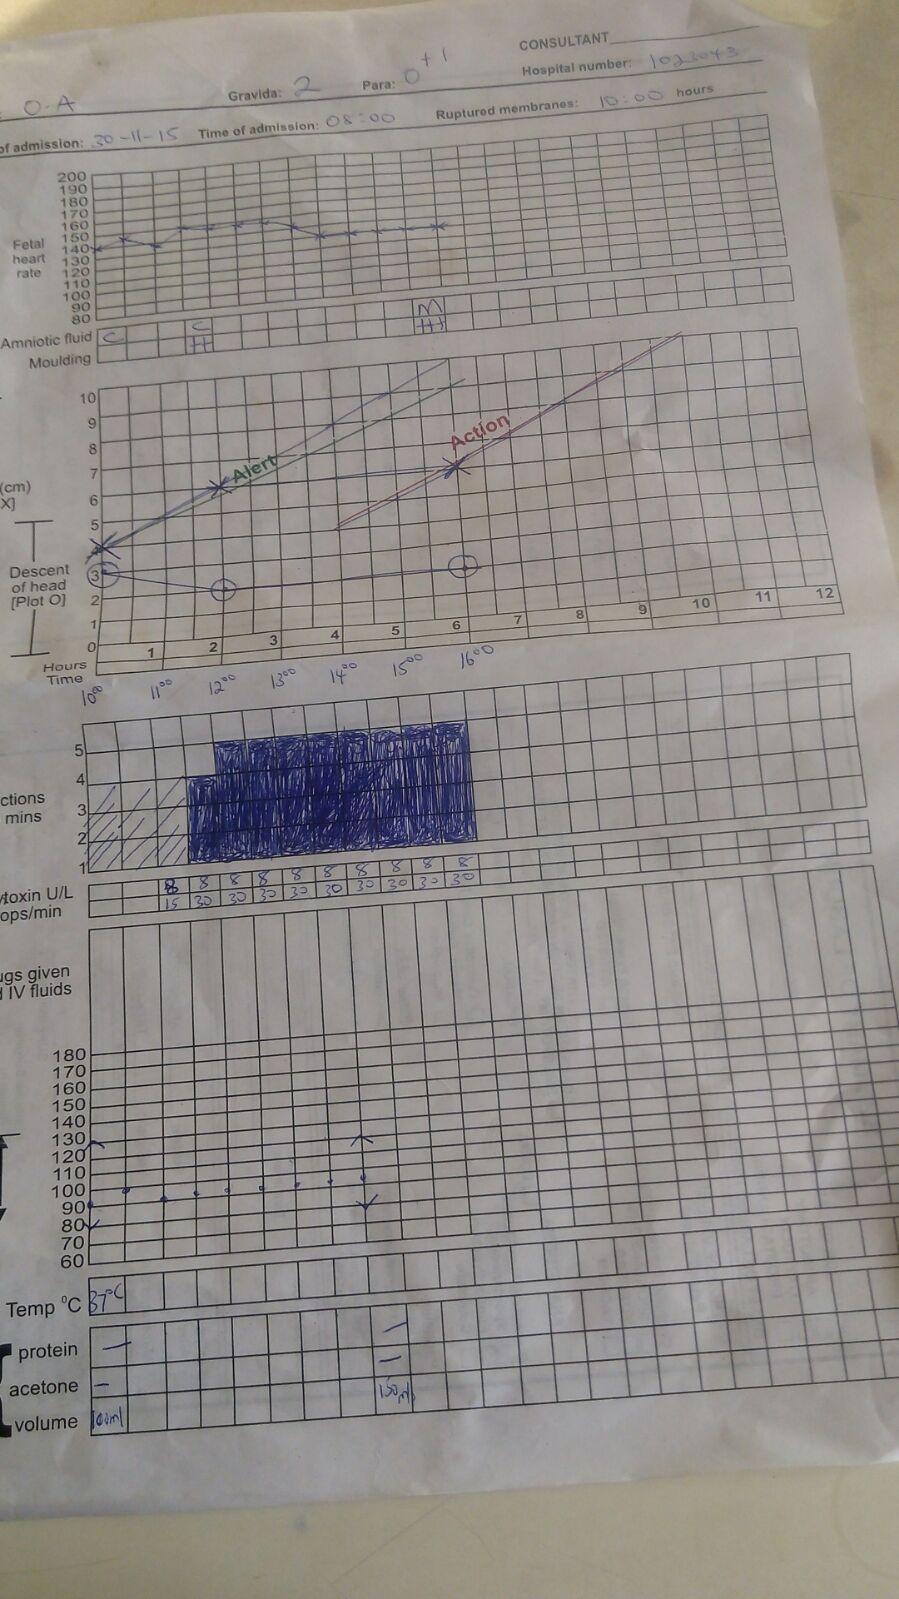 CONSULTANT
: O-A Gravida: 2 Para: 0+1 Hospital number: 1023043
of admission: 30-11-15 Time of admission: 08:00 Ruptured membranes: 10:00 hours
200
190
180
170
160
150
140
130
120
110
100
90
80
Fetal
heart
rate
Amniotic fluid C C M
Moulding
10
9
8
7
6
5
3
2
1
0
Alert
Action
(cm)
X]
Descent
of head
[Plot O]
Hours 1 2 3 4 5 6 7 8 9 10 11 12
Time 10:00 11:00 12:00 13:00 14:00 15:00 16:00
5
4
3
2
1
ctions
mins
ytoxin U/L 8 8 8 8 8 8 8 8 8 8
ops/min 15 30 30 30 30 30 30 30 30 30
ugs given
d IV fluids
180
170
160
150
140
130
120
110
100
90
80
70
60
Temp °C 37°C
protein –
acetone –
volume 100ml 150ml